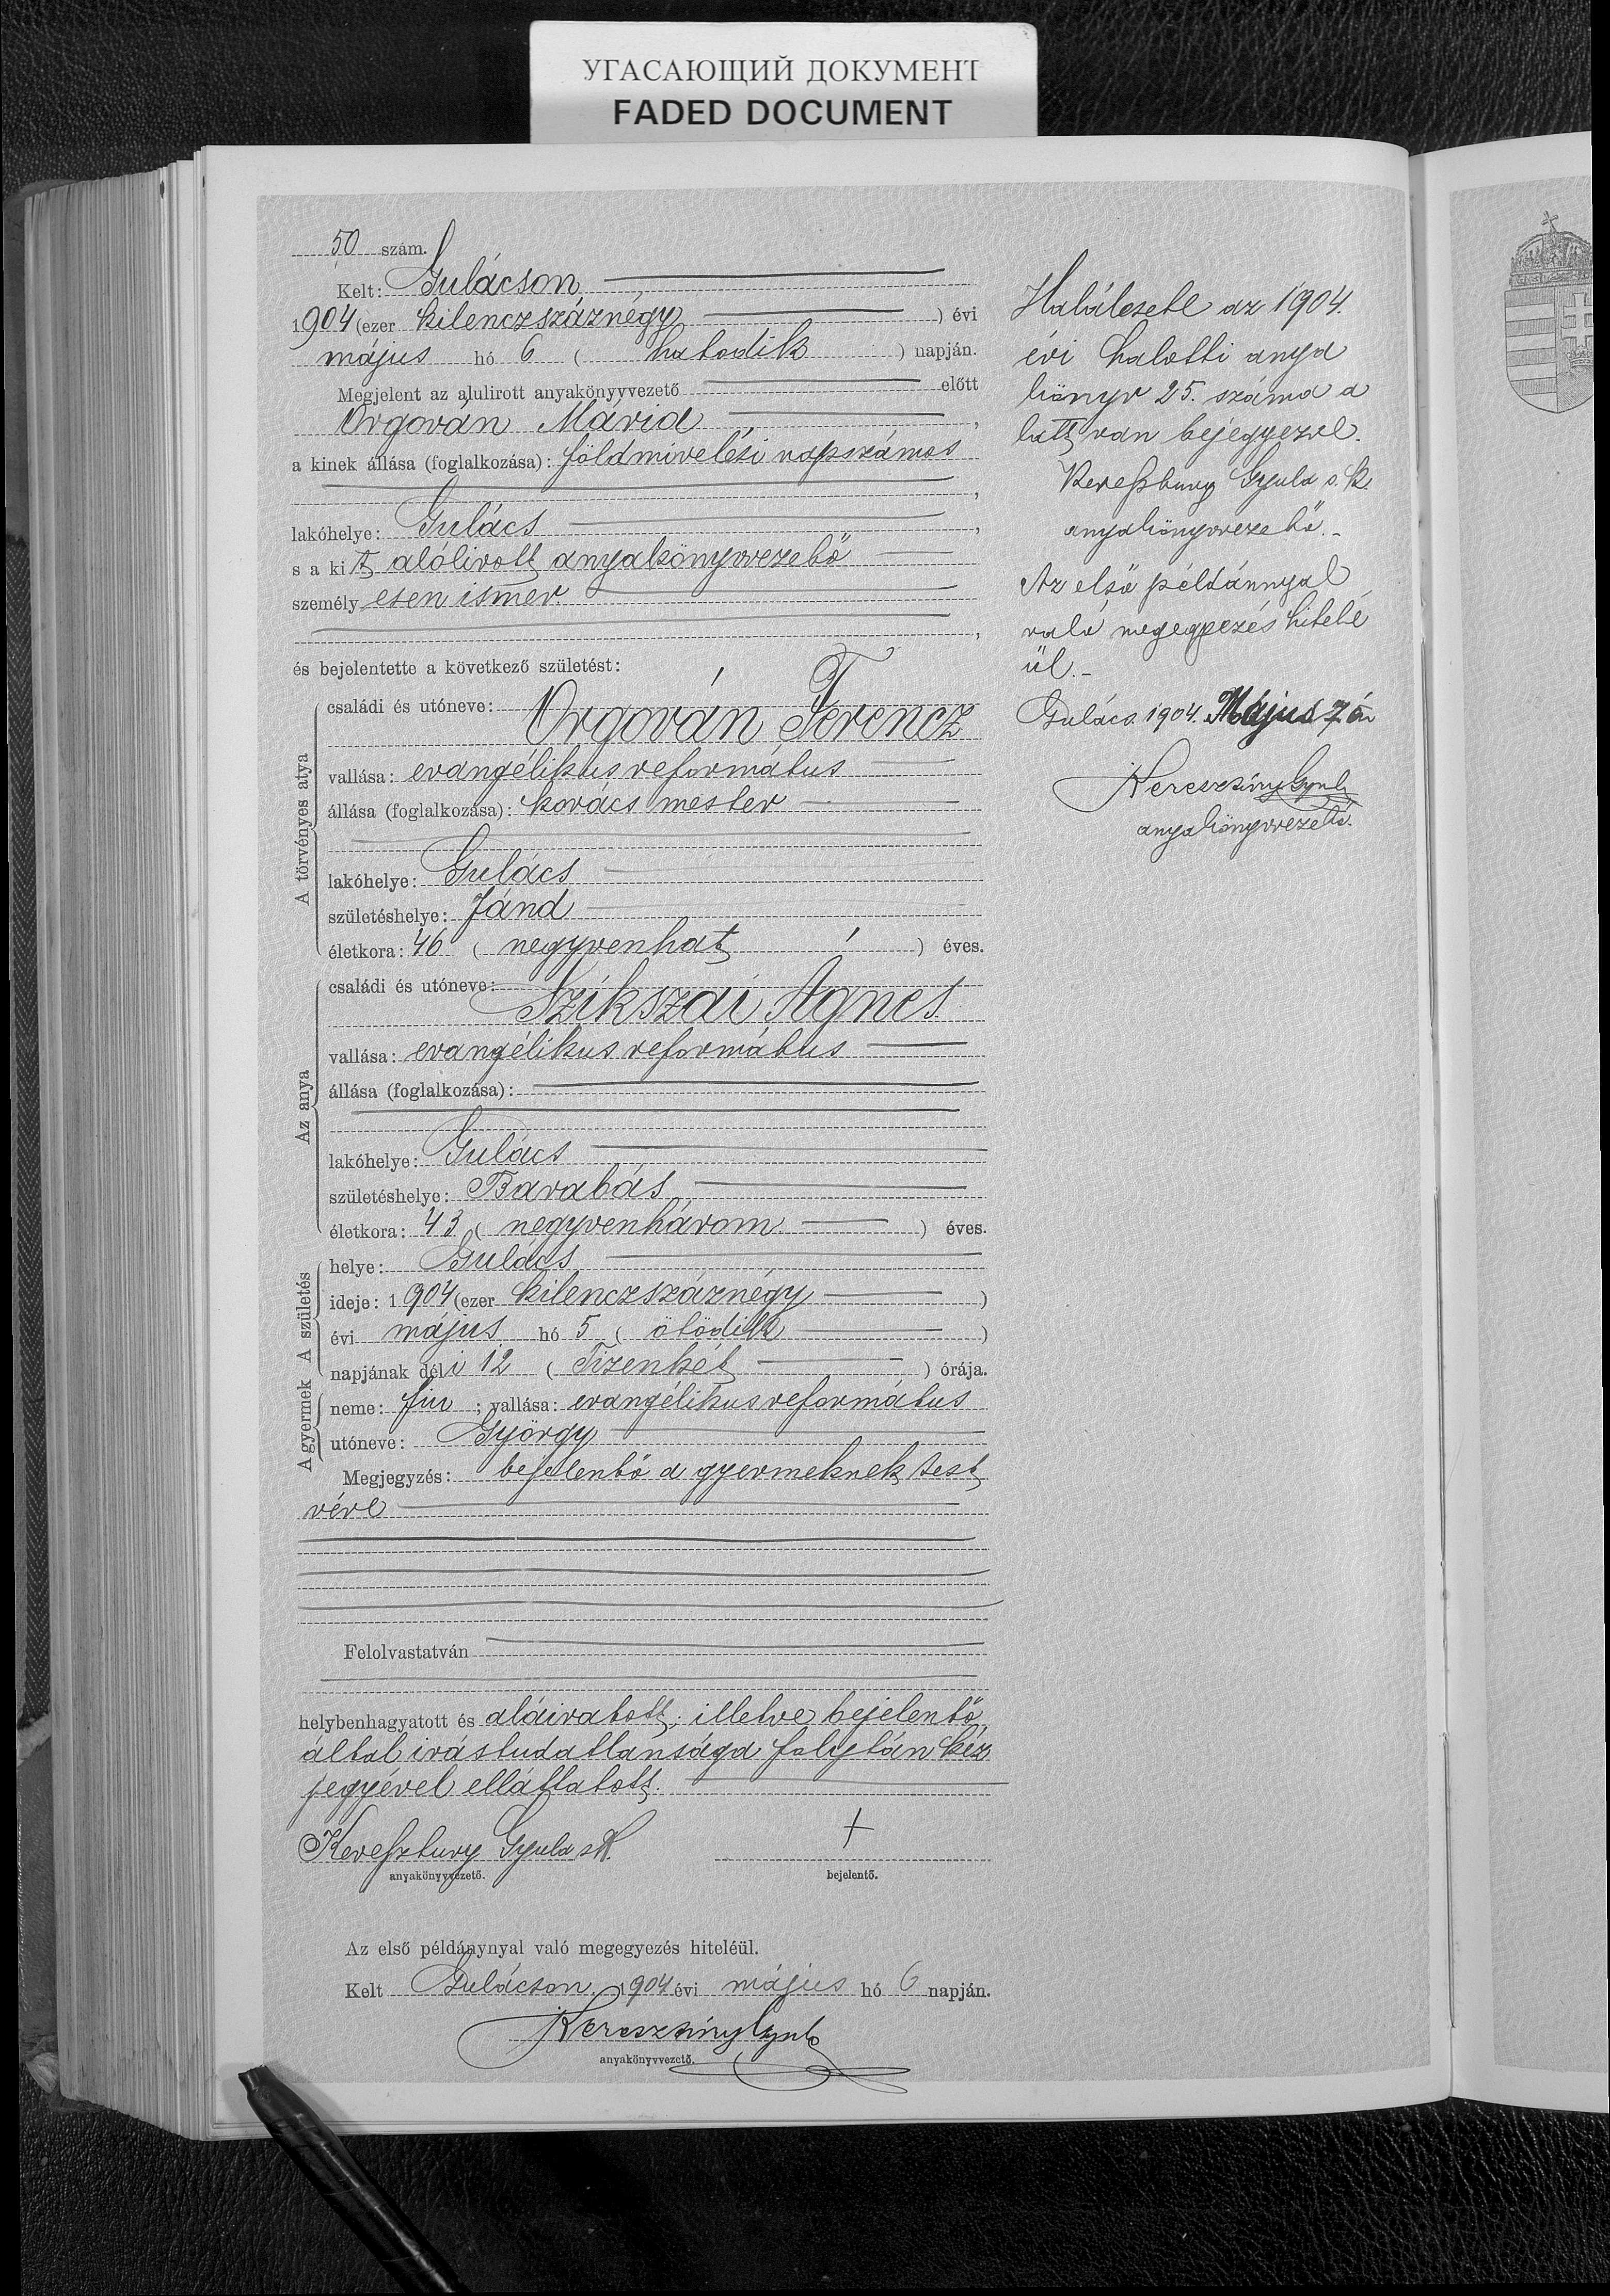 УГАСАЮЩИЙ ДОКУМЕНТ
FADED DOCUMENT
50 szám.
Kelt: Gulácson
1904 (ezer kilenczszáznégy ) évi
május hó 6 ( hatodik ) napján.
Megjelent az alulirott anyakönyvvezető előtt
Orgován Mária ,
a kinek állása (foglalkozása): földmivelési napszámos
,
lakóhelye: Gulács ,
s a kit alólirott anyakönyvvezető
személyesen ismer.
,
és bejelentette a következő születést:
A törvényes atya
családi és utóneve:
Orgován Ferencz
vallása: evangélikus református
állása (foglalkozása): kovács mester
lakóhelye: Gulács
születéshelye: Jánd
életkora: 46 ( negyvenhat ) éves.
Az anya
családi és utóneve:
Szikszai Ágnes
vallása: evangélikus református
állása (foglalkozása):
lakóhelye: Gulács
születéshelye: Barabás
életkora: 43 ( negyvenhárom ) éves.
A születés
helye: Gulács
ideje: 1904 (ezer kilenczszáznégy )
évi május hó 5 ( ötödik )
napjának déli 12 ( Tizenkét ) órája.
A gyermek
neme: fiu ; vallása: evangélikus református
utóneve: György
Megjegyzés: bejelentő a gyermeknek test
vére
Felolvastatván
helybenhagyatott és aláiratott; illetve bejelentő
által irástudatlansága folytán kéz
jegyével elláttatott.
Keresztury Gyula s.k. +
anyakönyvvezető. bejelentő.
Az első példánynyal való megegyezés hiteléül.
Kelt Gulácson, 1904 évi május hó 6 napján.
Keresztúry Gyula
anyakönyvvezető.
Halálesete az 1904.
évi halotti anya
könyv 25. száma a
latt van bejegyezve.
Keresztury Gyula s. k.
anyakönyvvezető.
Az első példánnyal
való megegyezés hitelé
ül.
Gulács 1904. Május 7 én
Keresztúry Gyula
anyakönyvvezető.